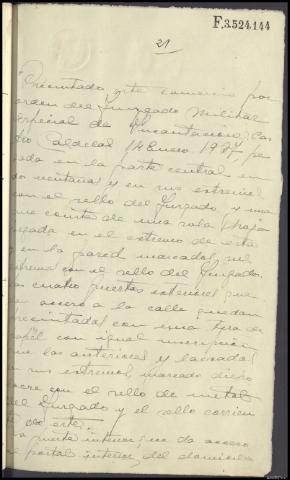 F.3.524.144
21
"Precintado este comercio por
orden del Juzgado Militar
especial de Incautaciones. Cas
tro Caldelas 14 Enero 1937" pe
gada en la parte central en
do ventana y en sus extremos
con el sello del Juzgado y una
que consta de una sola hoja
pegada en el extremo de esta
y en la pared marcados sus
extremos con el sello del Juzgado.
Las cuatro puertas exteriores que
dan acceso a la calle quedan
precintadas con una tira de
papel con igual inscripción
que las anteriores y lacradas
en sus extremos, marcado dicho
lacre con el sello de metal
del Juzgado y el sello corrien
te de este.
La puerta interior que da acceso
al portal interior, del domicilio